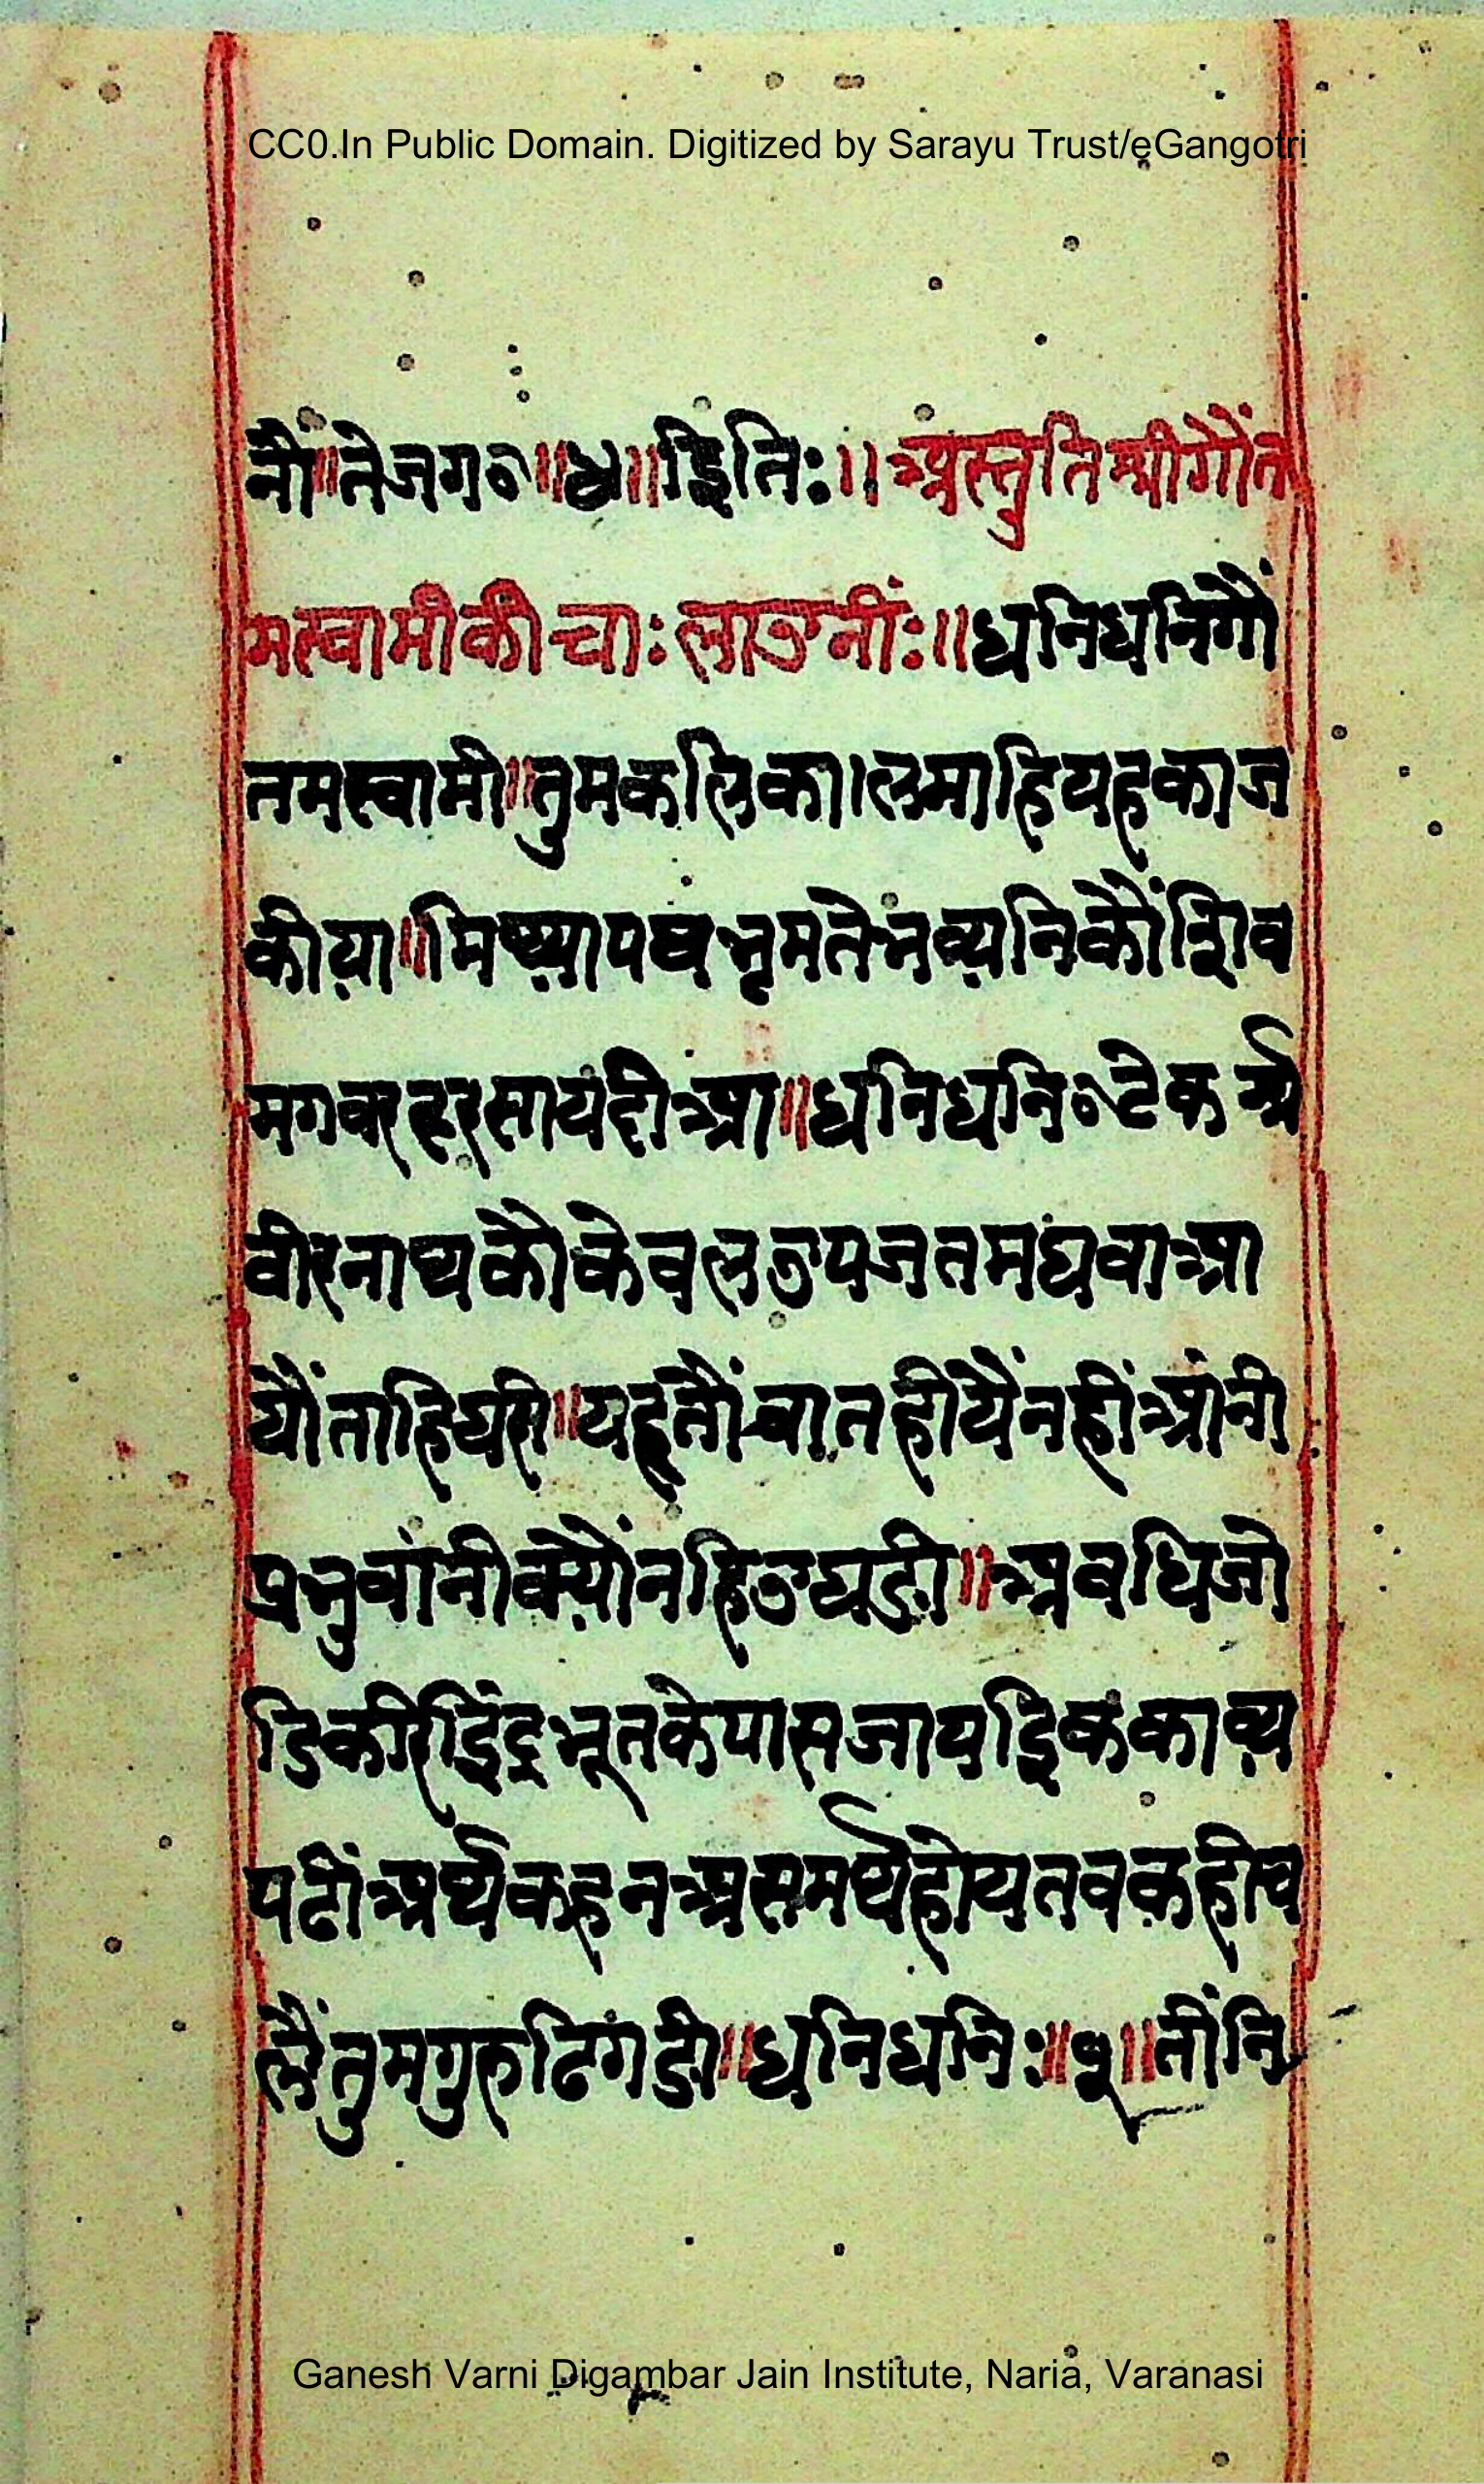 CC0.In Public Domain. Digitized by Sarayu Trust/eGangotri
नौं॥ तेजग०॥४॥ इतिः॥ अस्तुति श्रीगौंत
मस्वामीकी चाः लाउनीः॥ धनिधनिगौं
तमस्वामी॥ तुमकलिका।लमाहियहकाज
कीया॥ मिथ्यापषभृमतेभव्यनिकौंशिव
मगवरदरसायंदीआ॥ धनिधनि०टेक श्री
वीरनाथकौकेवलउपजतमघवाआ
यौंताहिघरी॥ यहतौंबातहीयैनहींआंनी
प्रभुवांनीक्यौंनहिउघडी॥ अवधिजो
डिकरिइंद्रभूतकेपासजायइिककाव्य
पढीं अर्थकहनअसमर्थहोयतवकहीच
लैंतुमगुरुढिगडी॥ धनिधनिः॥१॥ तींनि
Ganesh Varni Digambar Jain Institute, Naria, Varanasi